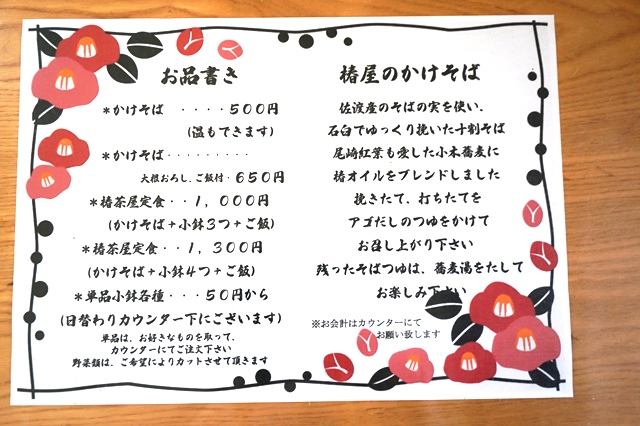 お品書き
＊かけそば ・・・・５００円
(温もできます)
＊かけそば・・・・・・・・・
大根おろし、ご飯付・６５０円
＊椿茶屋定食・・１，０００円
(かけそば＋小鉢３つ＋ご飯)
＊椿茶屋定食・・１，３００円
(かけそば＋小鉢４つ＋ご飯)
＊単品小鉢各種・・・５０円から
(日替わりカウンター下にございます)
単品は、お好きなものを取って、
カウンターにてご注文下さい
野菜類は、ご希望によりカットさせて頂きます
椿屋のかけそば
佐波産のそばの実を使い、
石臼でゆっくり挽いた十割そば
尾崎紅葉も愛した小木蕎麦に
椿オイルをブレンドしました
挽きたて、打ちたてを
アゴだしのつゆをかけて
お召し上がり下さい
残ったそばつゆは、蕎麦湯をたして
お楽しみ下さい
※お会計はカウンターにて
お願い致します